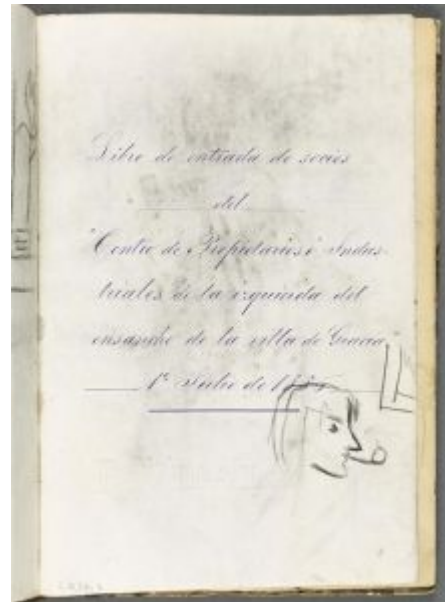 Libro de entrada de socios
del
"Centro de Propietarios é Indus-
triales de la izquierda del
ensanche de la villa de Gracia
1º Julio de